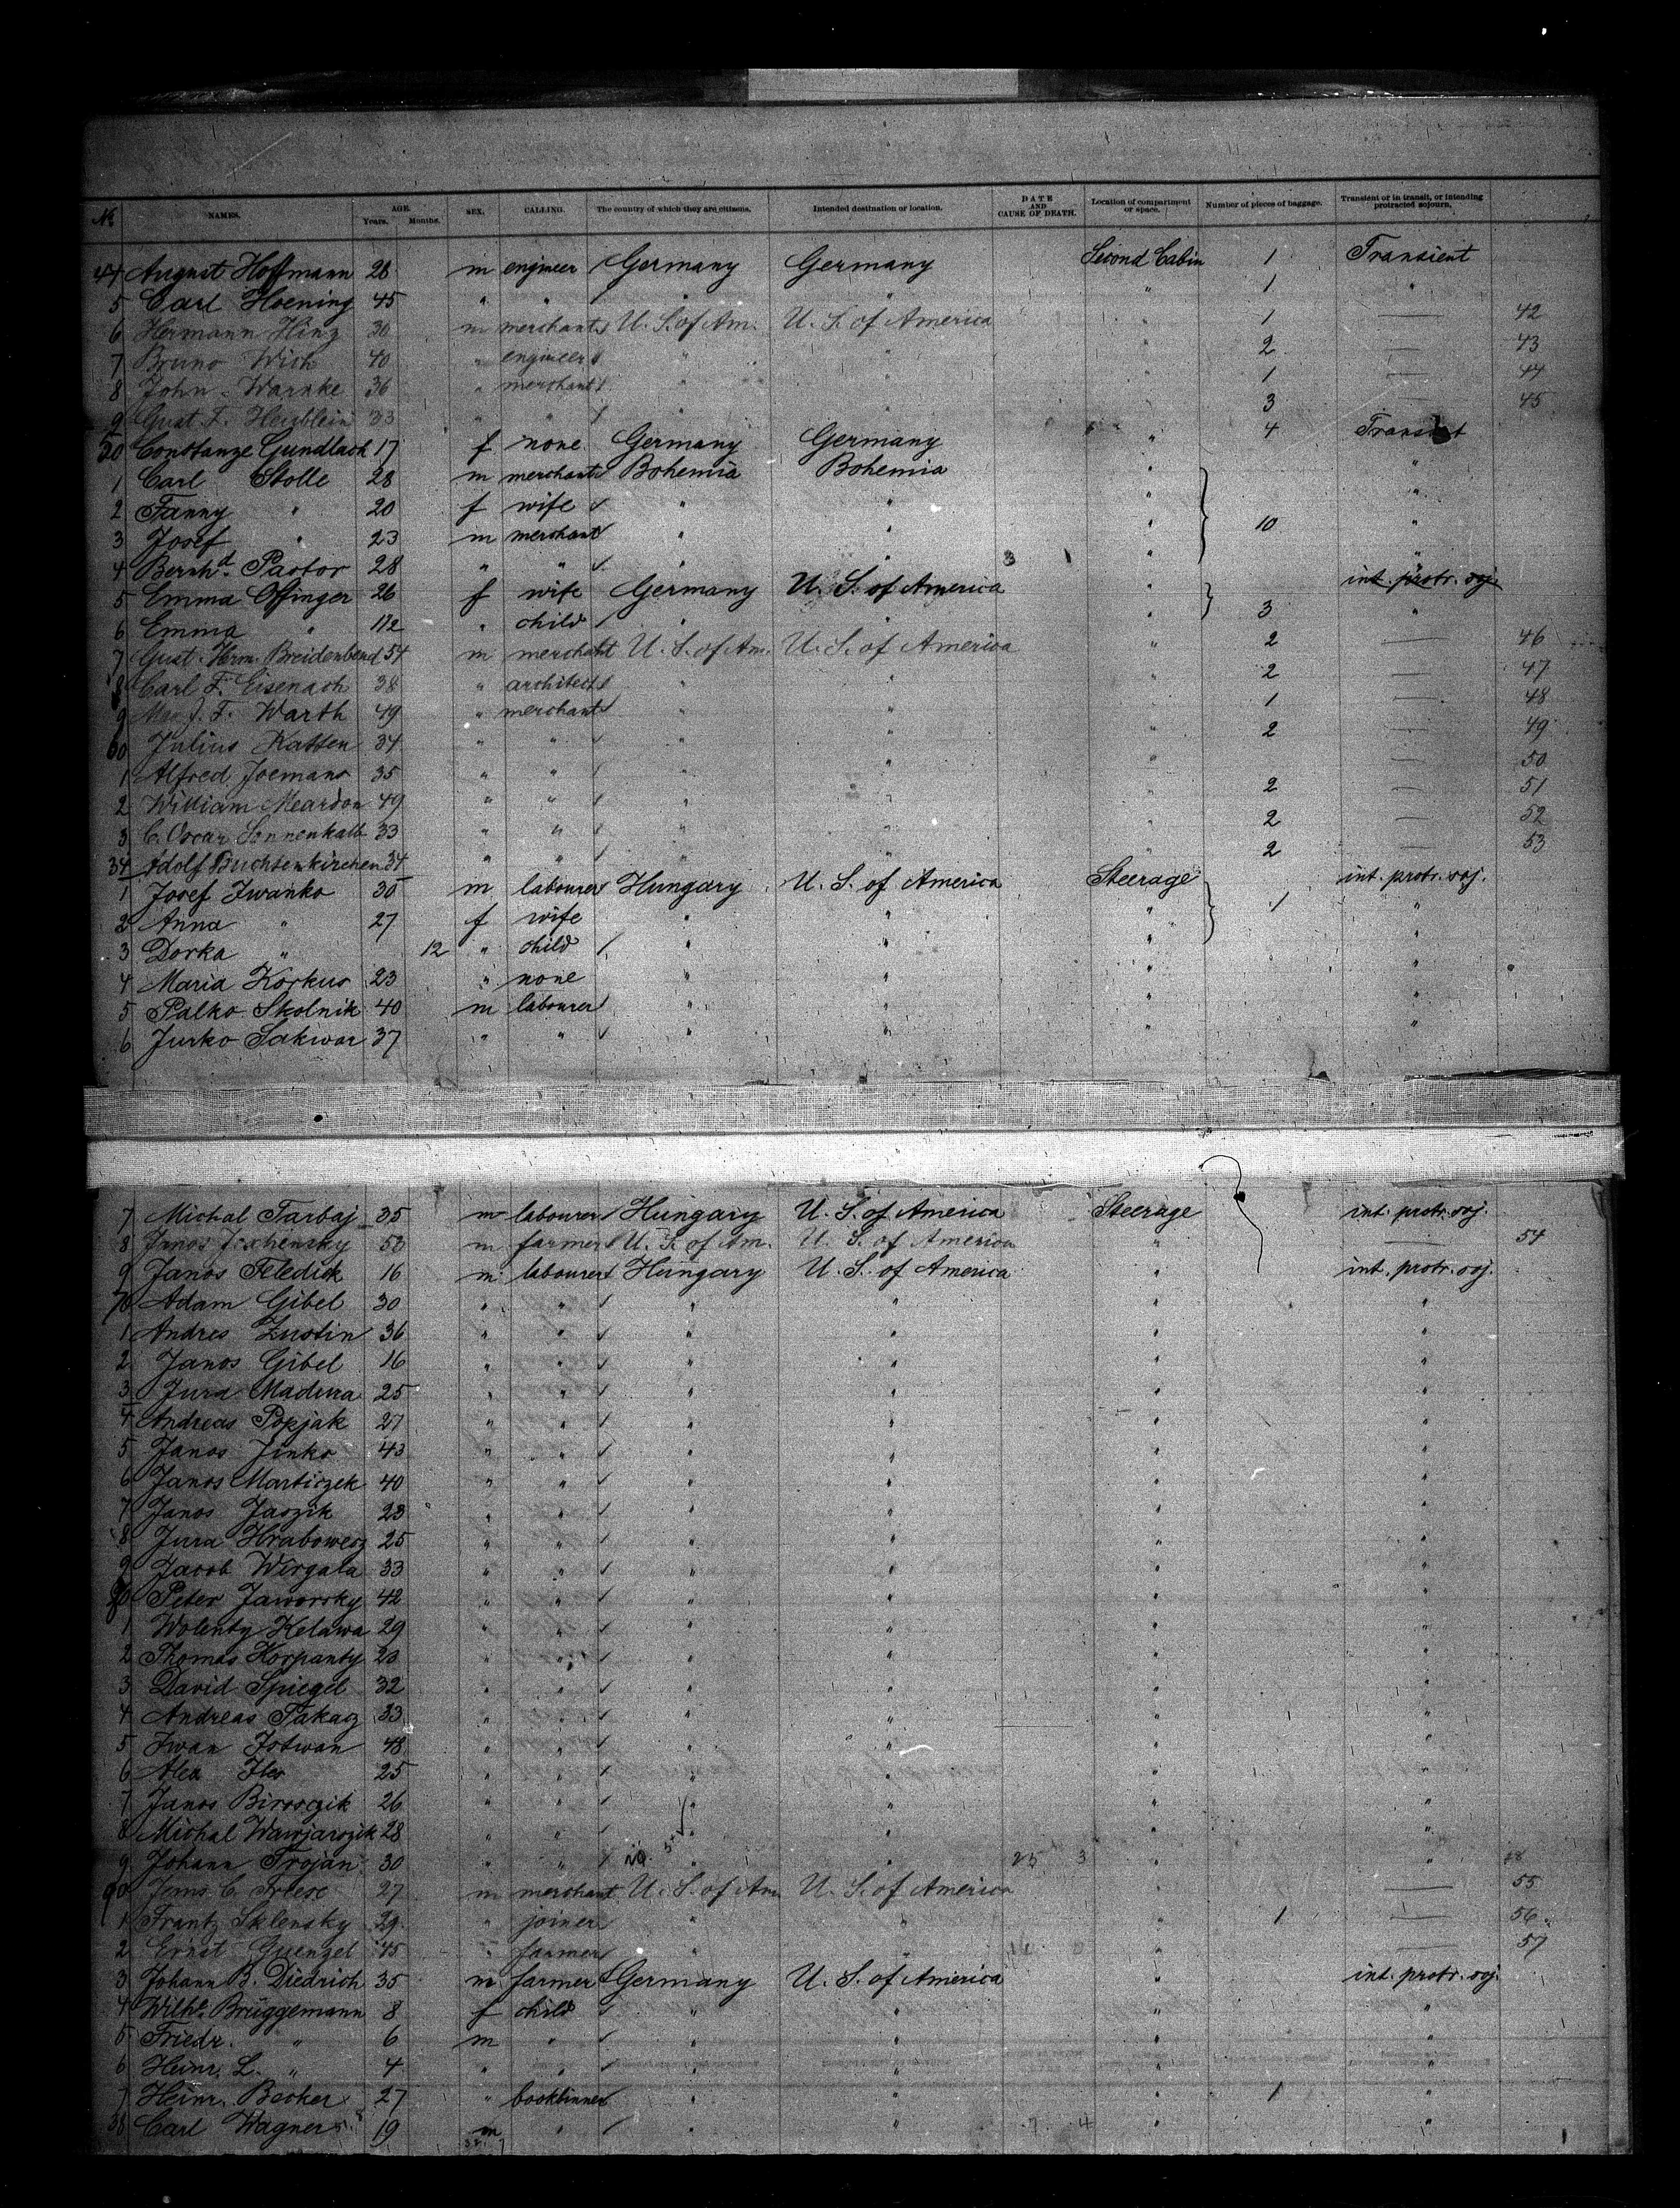 No. NAMES. AGE. Years. Months. SEX. CALLING. The country of which they are citizens. Intended destination or location. DATE AND CAUSE OF DEATH. Location of compartment or space. Number of pieces of baggage. Transient or in transit, or intending protracted sojourn.
44 August Hoffmann 28 m engineer Germany Germany Second Cabin 1 Transient
5 Carl Hoening 45 " " " " " 1 "
6 Hermann Hinz 30 m merchant U. S. of Am. U. S. of America " 1 — 42
7 Bruno Wich 40 " engineer " " " 2 — 43
8 John Warnke 36 " merchant " " " 1 — 44
9 Gust. F. Herblein 33 " " " " " 3 — 45
50 Constanze Gundlach 17 f none Germany Germany " 4 Transient
1 Carl Stolle 28 m merchant Bohemia Bohemia " "
2 Fanny " 20 f wife " " " "
3 Josef " 23 m merchant " " " 10 "
4 Bernhd. Pastor 28 " " " " 3 " "
5 Emma Offinger 26 f wife Germany U. S. of America " int. protr. soj.
6 Emma " 11/2 " child " " " 3 "
7 Gust. Herm. Breidenbend 54 m merchant U. S. of Am. U. S. of America " 2 — 46
8 Carl F. Eisenach 38 " architect " " " 2 — 47
9 J. F. Warth 49 " merchant " " " 1 — 48
60 Julius Katten 34 " " " " " 2 — 49
1 Alfred Joemans 35 " " " " " — 50
2 William Meardon 49 " " " " " 2 — 51
3 C. Oscar Sonnenkalb 33 " " " " " 2 — 52
34 Adolf Buchsenkirchen 34 " " " " " 2 — 53
1 Josef Iwanko 30 m labourer Hungary U. S. of America Steerage int. protr. soj.
2 Anna " 27 f wife " " " 1 "
3 Dorka " 12 " child " " " "
4 Maria Korkus 23 " none " " " "
5 Palko Skolnik 40 m labourer " " " "
6 Jurko Sakwar 37 " " " " " "
7 Michal Tarbaj 35 m labourer Hungary U. S. of America Steerage int. protr. soj.
8 Janos 53 m farmer U. S. of Am. U. S. of America " — 54
9 Janos Feledick 16 m labourer Hungary U. S. of America " int. protr. soj.
70 Adam Gibel 30 " " " " " "
1 Andres Zustin 36 " " " " " "
2 Janos Gibel 16 " " " " " "
3 Jura Madura 25 " " " " " "
4 Andreas Popjak 27 " " " " " "
5 Janos Jinko 43 " " " " " "
6 Janos Marticzek 40 " " " " " "
7 Janos Jaszik 23 " " " " " "
8 Jura Hrabowesz 25 " " " " " "
9 Jacob Wirgala 33 " " " " " "
80 Peter Jaworsky 42 " " " " " "
1 Wolenty Kelawa 29 " " " " " "
2 Thomas Korpanty 23 " " " " " "
3 David Spiegel 32 " " " " " "
4 Andreas Takacz 33 " " " " " "
5 Iwan Jotwan 48 " " " " " "
6 Alex Iles 25 " " " " " "
7 Janos Birosczik 26 " " " " " "
8 Michal Wawjarszik 28 " " " " " "
9 Johann Trojan 30 " " " " 25 3 " " 28
90 Jems C. Friese 27 m merchant U. S. of Am. U. S. of America " — 55
1 Frantz Sklensky 29 " joiner " " " 1 — 56
2 Ernst Guenzel 45 " farmer " " " — 57
3 Johann B. Diedrich 35 m farmer Germany U. S. of America " int. protr. soj.
4 Wilhe. Brüggemann 8 f child " " " "
5 Friedr. " 6 m " " " " "
6 Heinr. L. " 4 " " " " " "
7 Heinr. Becker 27 " bookbinner " " " 1 "
38 Carl Wagner 19 m " " " 7 4 " "